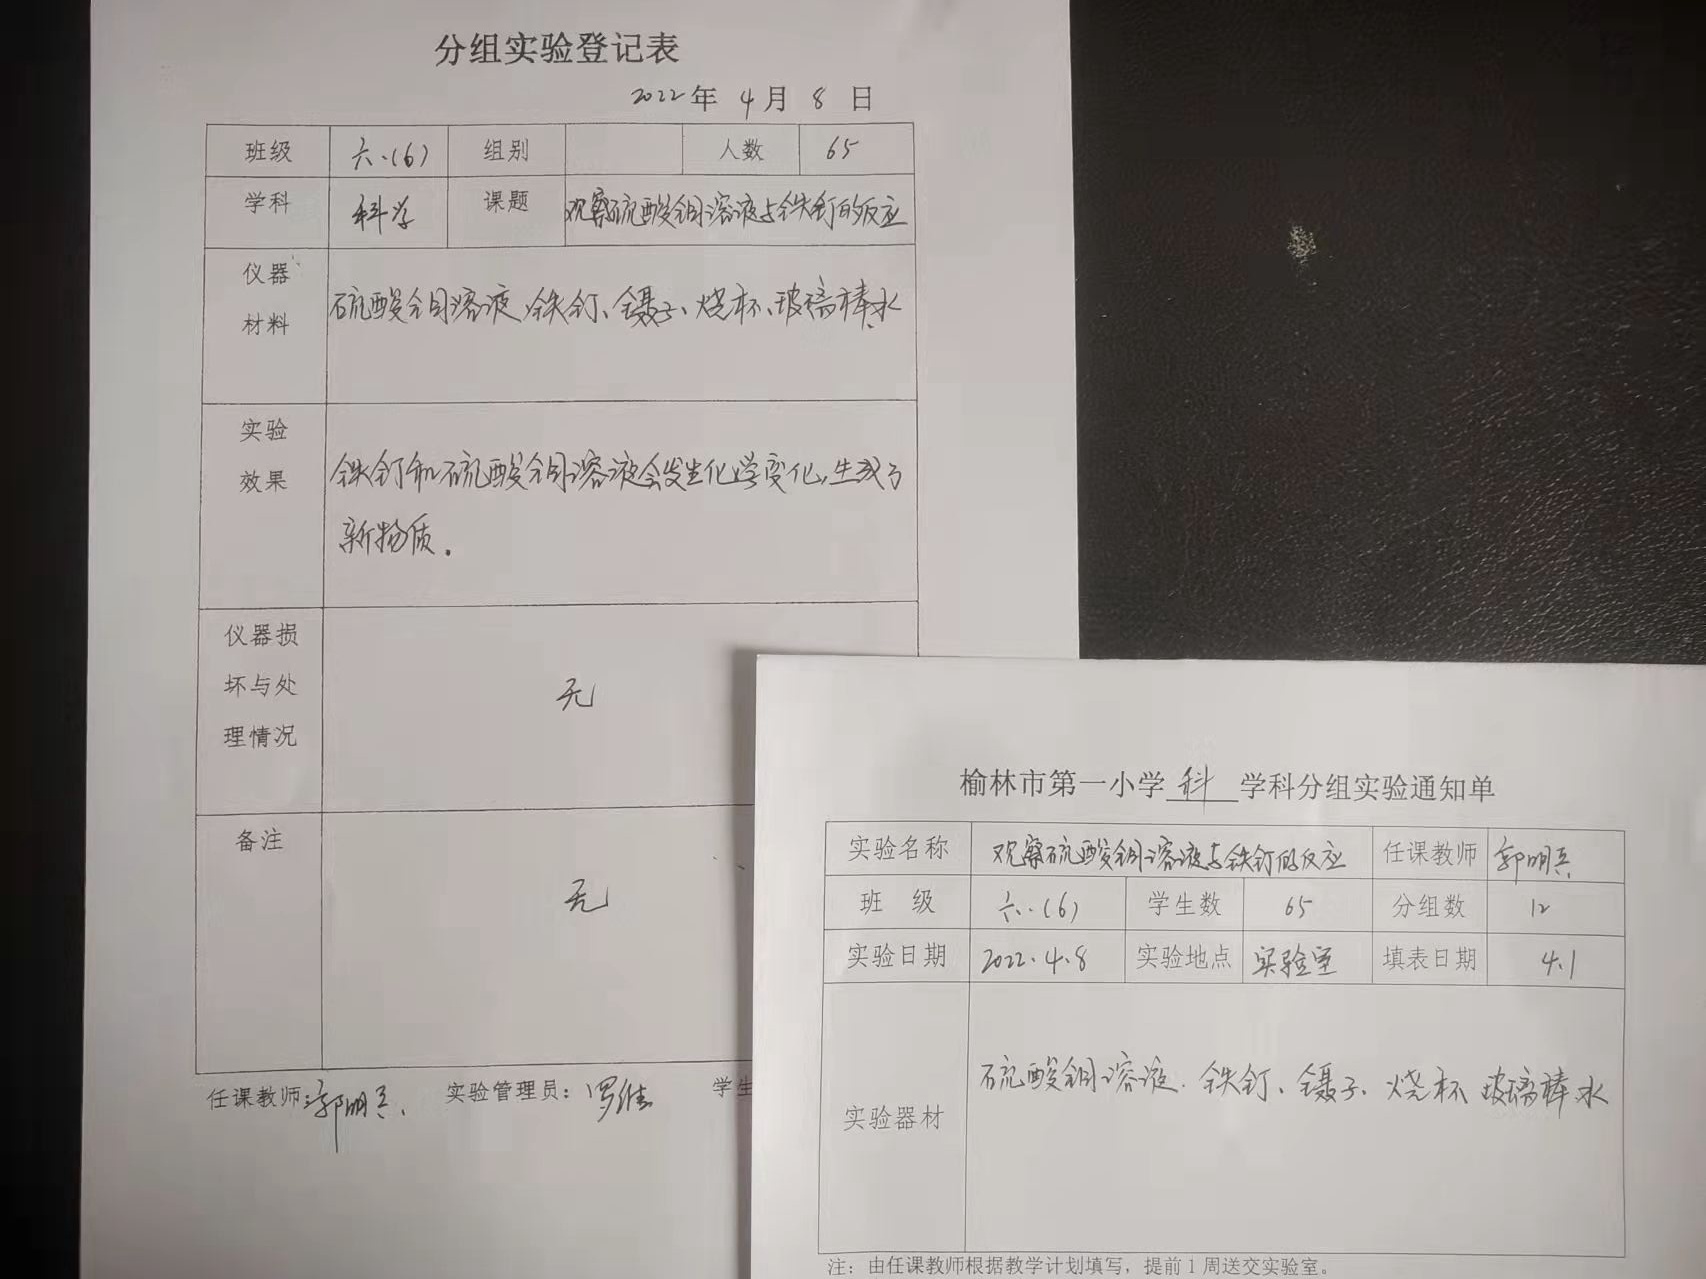 分组实验登记表
2022年 4月 8 日
班级 六.(6) 组别 人数 65
学科 科学 课题 观察硫酸铜溶液与铁钉的反应
仪器
材料
硫酸铜溶液、铁钉、镊子、烧杯、玻璃棒、水
实验
效果
铁钉和硫酸铜溶液会发生化学变化,生成了
新物质.
仪器损
坏与处
理情况
无
备注
无
任课教师:郭明兵、 实验管理员:罗佳 学生
榆林市第一小学 科 学科分组实验通知单
实验名称 观察硫酸铜溶液与铁钉的反应 任课教师 郭明兵
班 级 六.(6) 学生数 65 分组数 12
实验日期 2022.4.8 实验地点 实验室 填表日期 4.1
实验器材 硫酸铜溶液、铁钉、镊子、烧杯 玻璃棒 水
注:由任课教师根据教学计划填写,提前1周送交实验室。